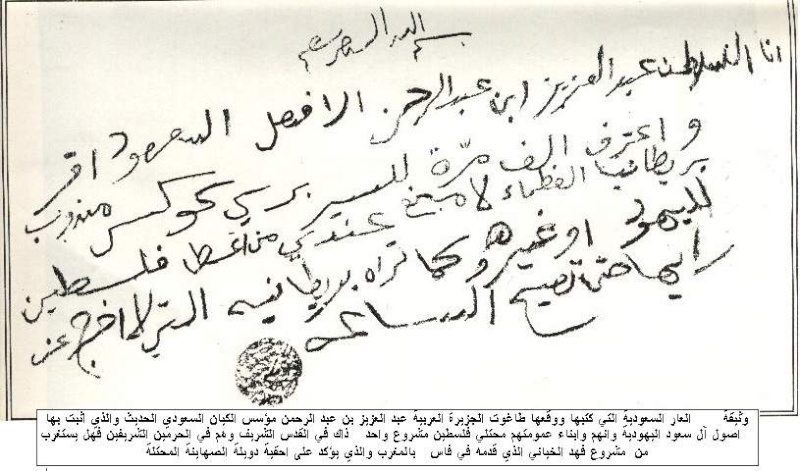 بسم الله الرحمن الرحيم
انا السلطان عبدالعزيز ابن عبدالرحمن الافصل السعود اقر
واعترف الف مرّة للسير برسي كوكس مندوب
بريطانيا العظماء لا مانع عندي من اعطا فلسطين
لليهود او غيرهم وكما تراه بريطانيه التي لا اخرج عن
رايها حتى تصيح الساعه
وثيقة العار السعودية التي كتبها ووقعها طاغوت الجزيرة العربية عبد العزيز بن عبد الرحمن مؤسس الكيان السعودي الحديث والذي اثبت بها
اصول آل سعود اليهودية وانهم وابناء عمومتهم محتلي فلسطين مشروع واحد ذاك في القدس الشريف وهم في الحرمين الشريفين فهل يستغرب
من مشروع فهد الخياني الذي قدمه في فاس بالمغرب والذي يؤكد على احقية دويلة الصهاينة المحتلة